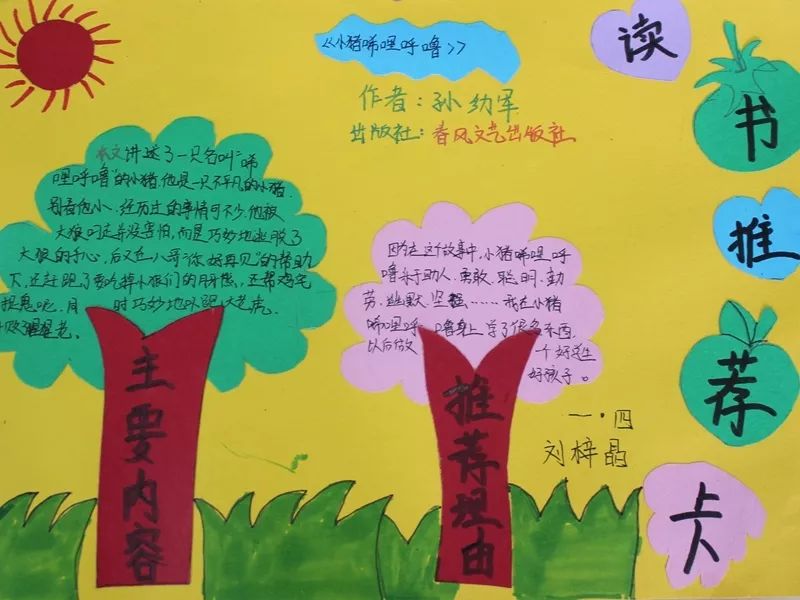 《小猪唏哩呼噜》
作者：孙幼军
出版社：春风文艺出版社
读
书
推
荐
卡
本文讲述了一只名叫"唏
哩呼噜"的小猪.他是一只不平凡的小猪.
别看他小、经历过的事情可不少.他被
大狼叼走并没害怕,而是巧妙地逃脱了
大狼的手心,后又在八哥"你好再见"的帮助
下,还赶跑了要吃掉小狼们的
还帮鸡宝
捉鬼呢.
时巧妙地
主要内容
因为在这个故事中,小猪唏哩呼
噜乐于助人.勇敢.聪明.勤
劳.幽默.坚强……我在小猪
唏哩呼噜身上学了很多东西,
以后做一个好学生
好孩子。
推荐理由
一·四
刘梓晶